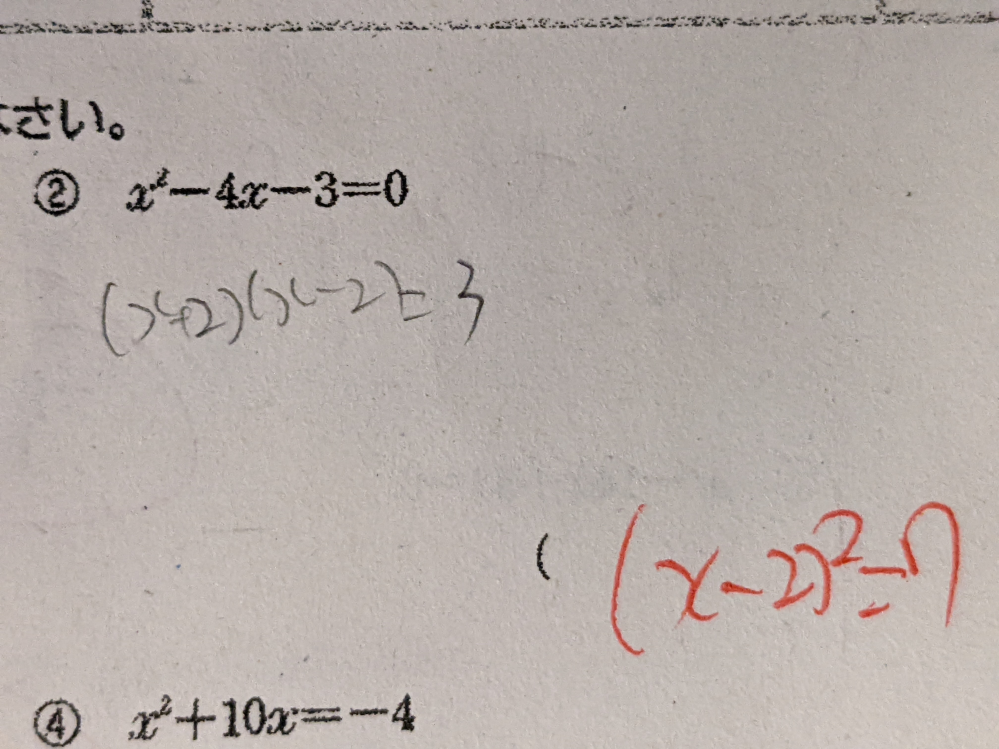 さい。
② x²-4x-3=0
(x+2)(x-2)=3
( (x-2)²=7
④ x²+10x=-4